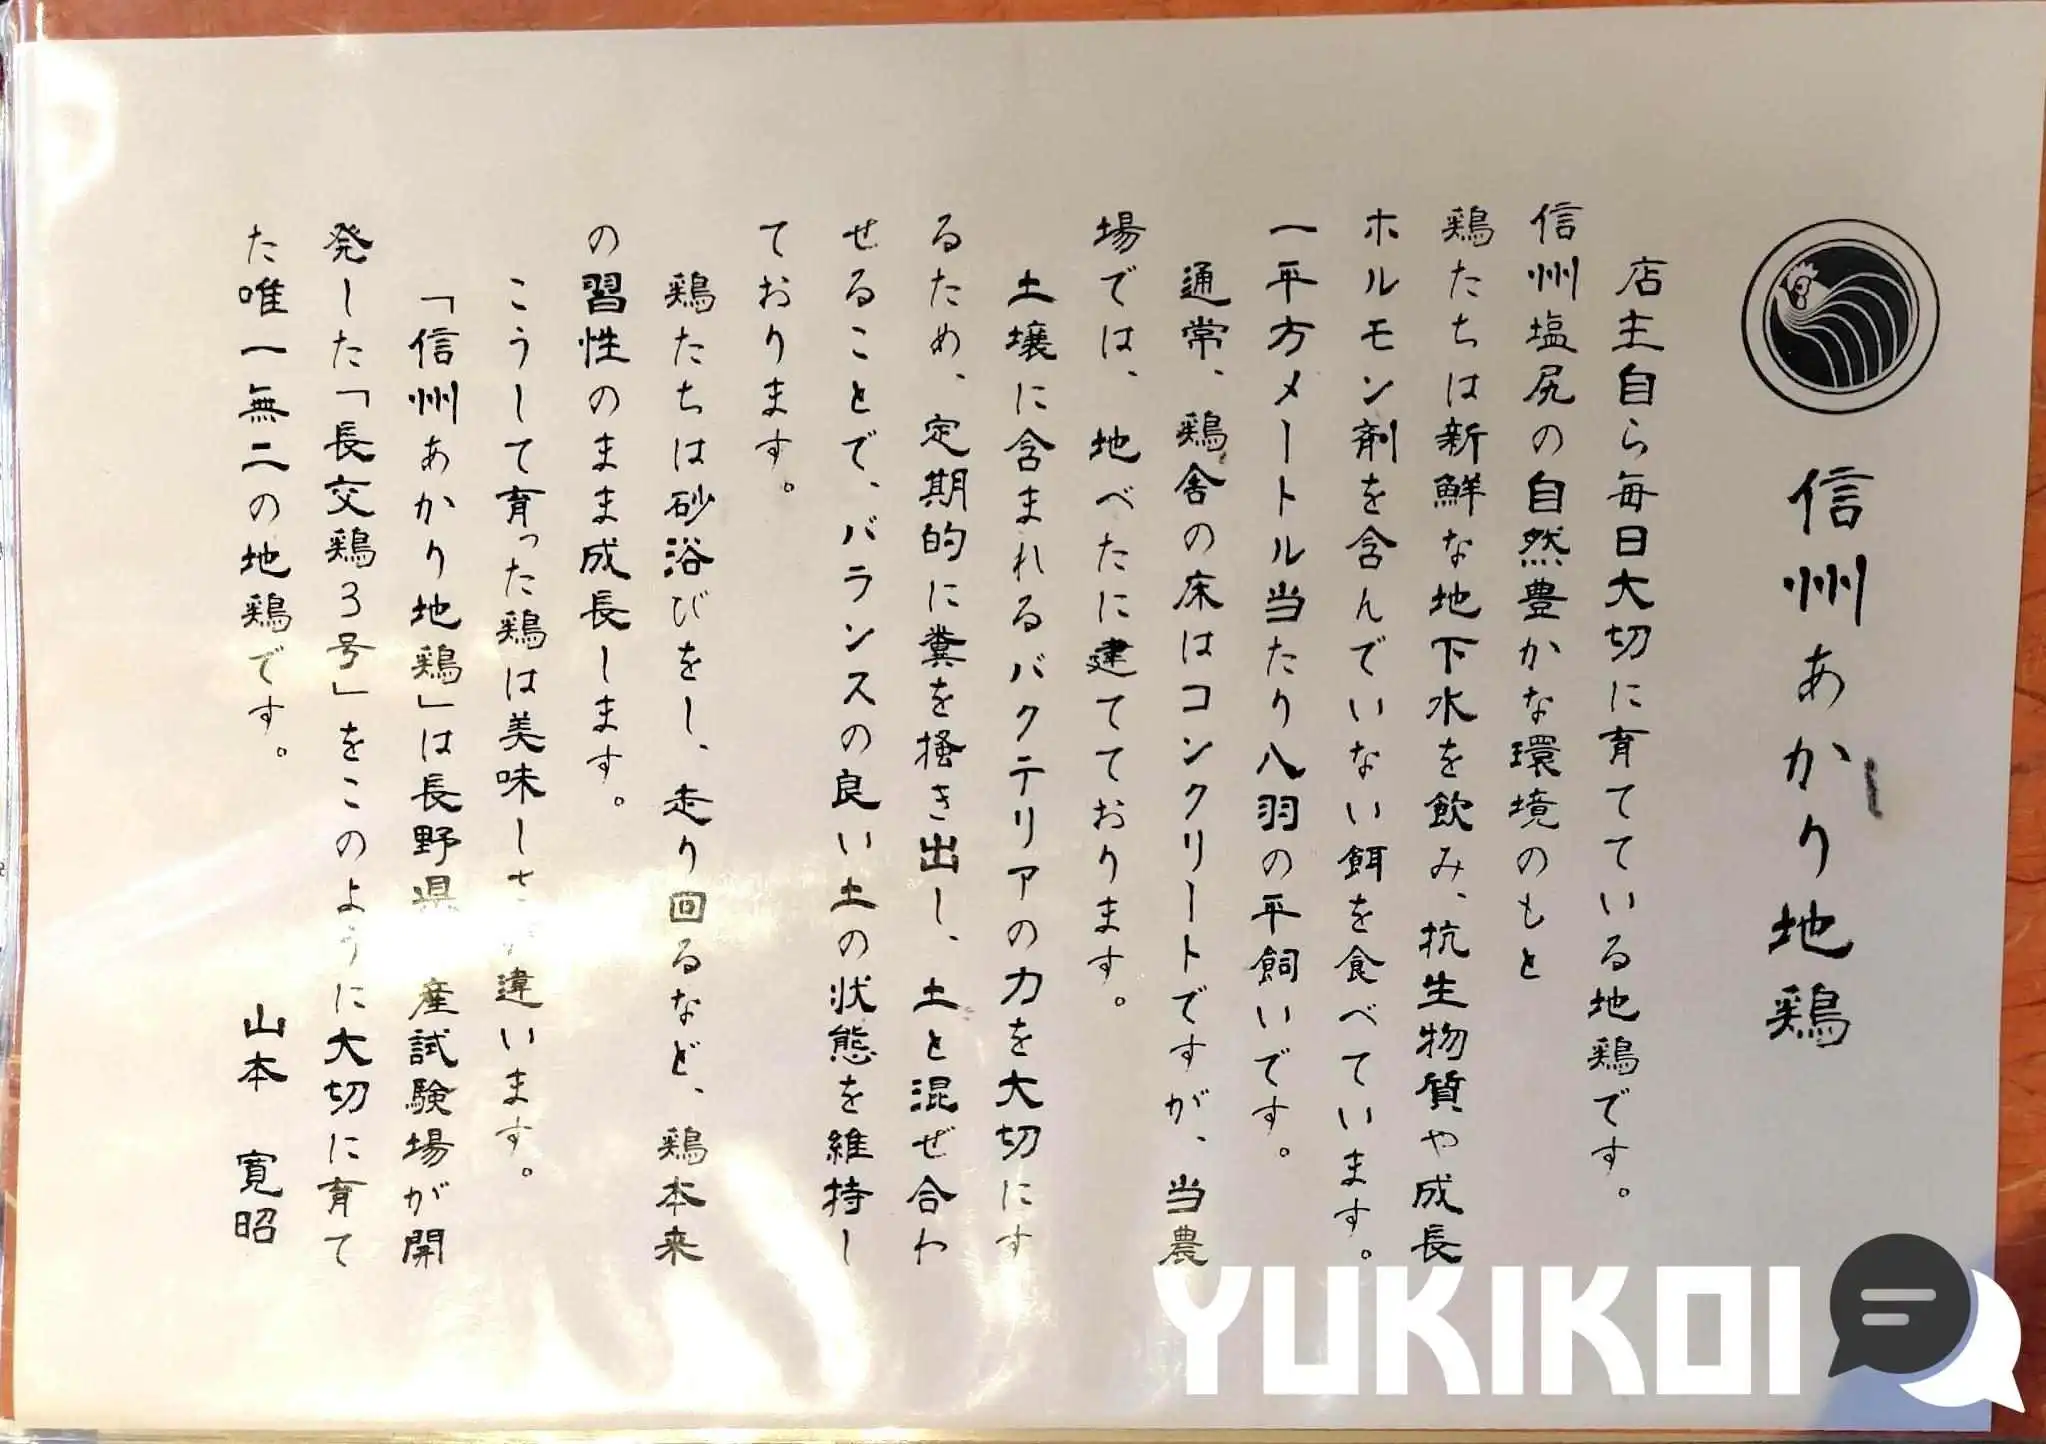 信州あかり地鶏
店主自ら毎日大切に育てている地鶏です。
信州塩尻の自然豊かな環境のもと
鶏たちは新鮮な地下水を飲み、抗生物質や成長
ホルモン剤を含んでいない餌を食べています。
一平方メートル当たり八羽の平飼いです。
通常、鶏舎の床はコンクリートですが、当農
場では、地べたに建てております。
土壌に含まれるバクテリアの力を大切にす
るため、定期的に糞を掻き出し、土と混ぜ合わ
せることで、バランスの良い土の状態を維持し
ております。
鶏たちは砂浴びをし、走り回るなど、鶏本来
の習性のまま成長します。
こうして育った鶏は美味しさが違います。
「信州あかり地鶏」は長野県 産試験場が開
発した「長交鶏3号」をこのように大切に育て
た唯一無二の地鶏です。
山本 寛昭
YUKIKOI